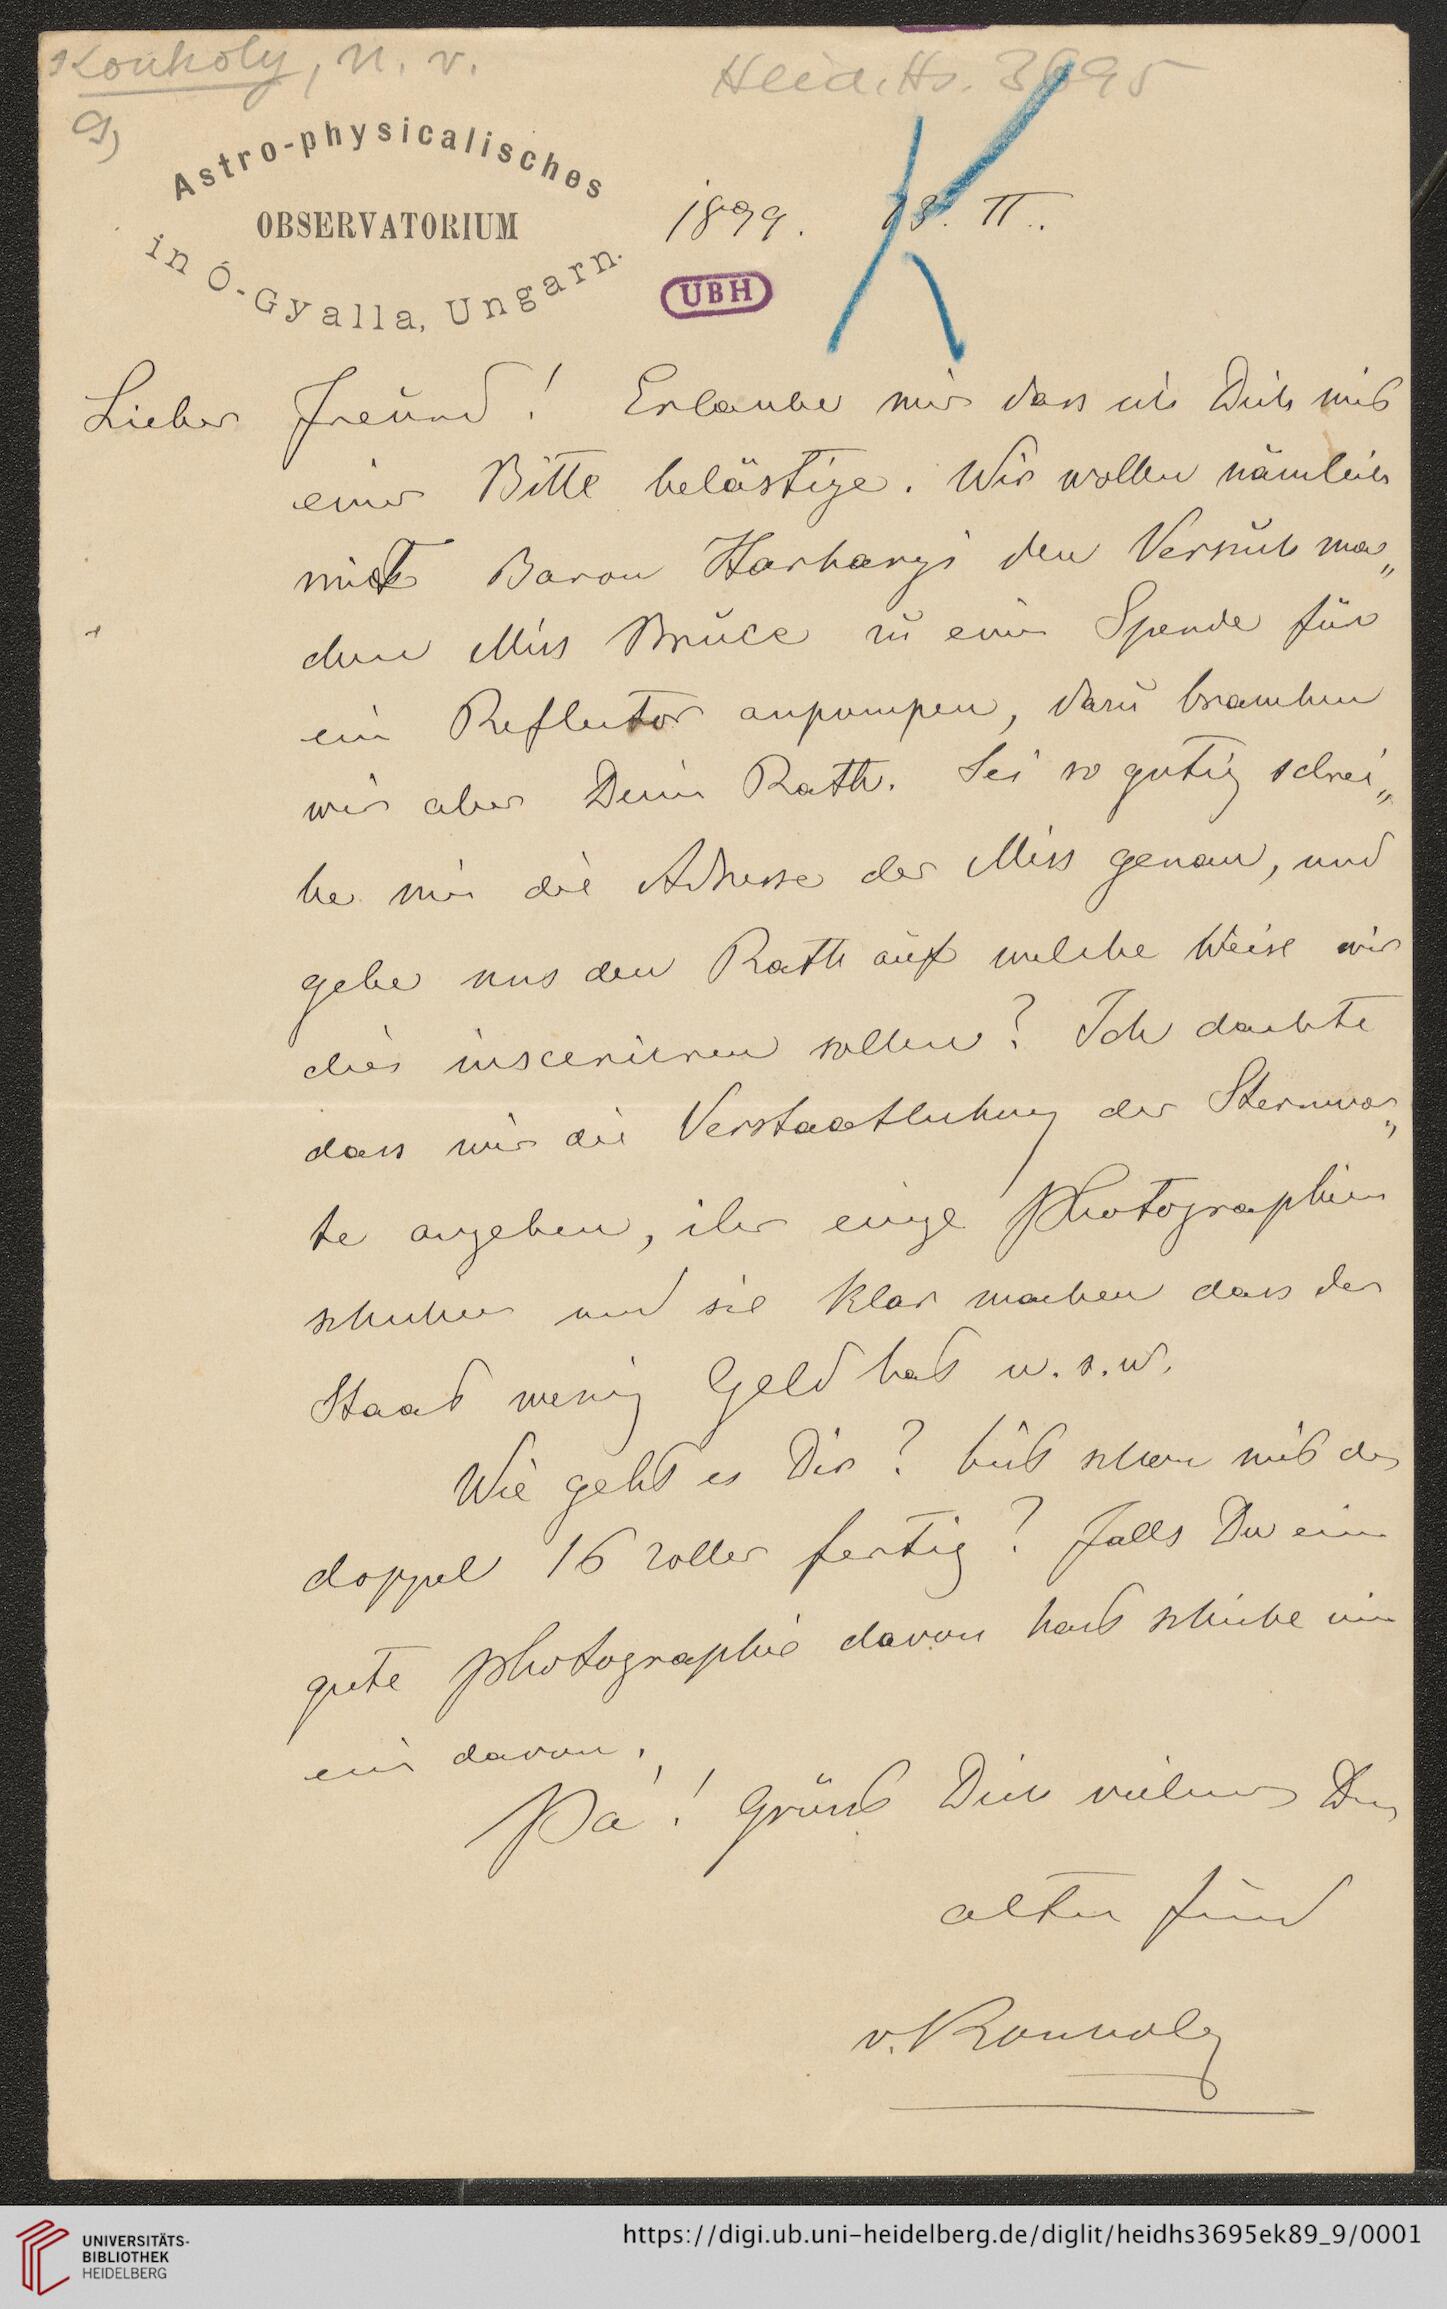 Konkoly, N. v.
Heid. Hs. 3695
9)
Astro-physicalisches
OBSERVATORIUM
in Ó-Gyalla, Ungarn.
1899. 13. II.
UBH
Lieber Freund! Erlaube mir dass ich Dich mit
einer Bitte belästige. Wir wollen nämlich
mit Baron Harkanyi den Versuch ma„
chen Miss Bruce zu einer Spende für
ein Reflector anpumpen, dazu brauchen
wir aber Dein Rath. Sei so gutig schrei„
be mir die Adresse der Miss genau, und
gebe uns den Rath auf welche Weise wir
dies inscenieren sollen? Ich dachte
dass wir die Verstaatlichung der Sternwar„
te angeben, ihr einige Photographien
schicken und sie klar machen dass der
Staat wenig Geld hat u. s. w.
Wie geht es Dir? bist schon mit der
doppel 16 zoller fertig? Falls Du eine
gute Photographie davon hast schicke mir
ein davon.
Pá! Grüsst Dich vielmals Dein
alter Freund
v. Konkoly
UNIVERSITÄTS-
BIBLIOTHEK
HEIDELBERG
https://digi.ub.uni-heidelberg.de/diglit/heidhs3695ek89_9/0001